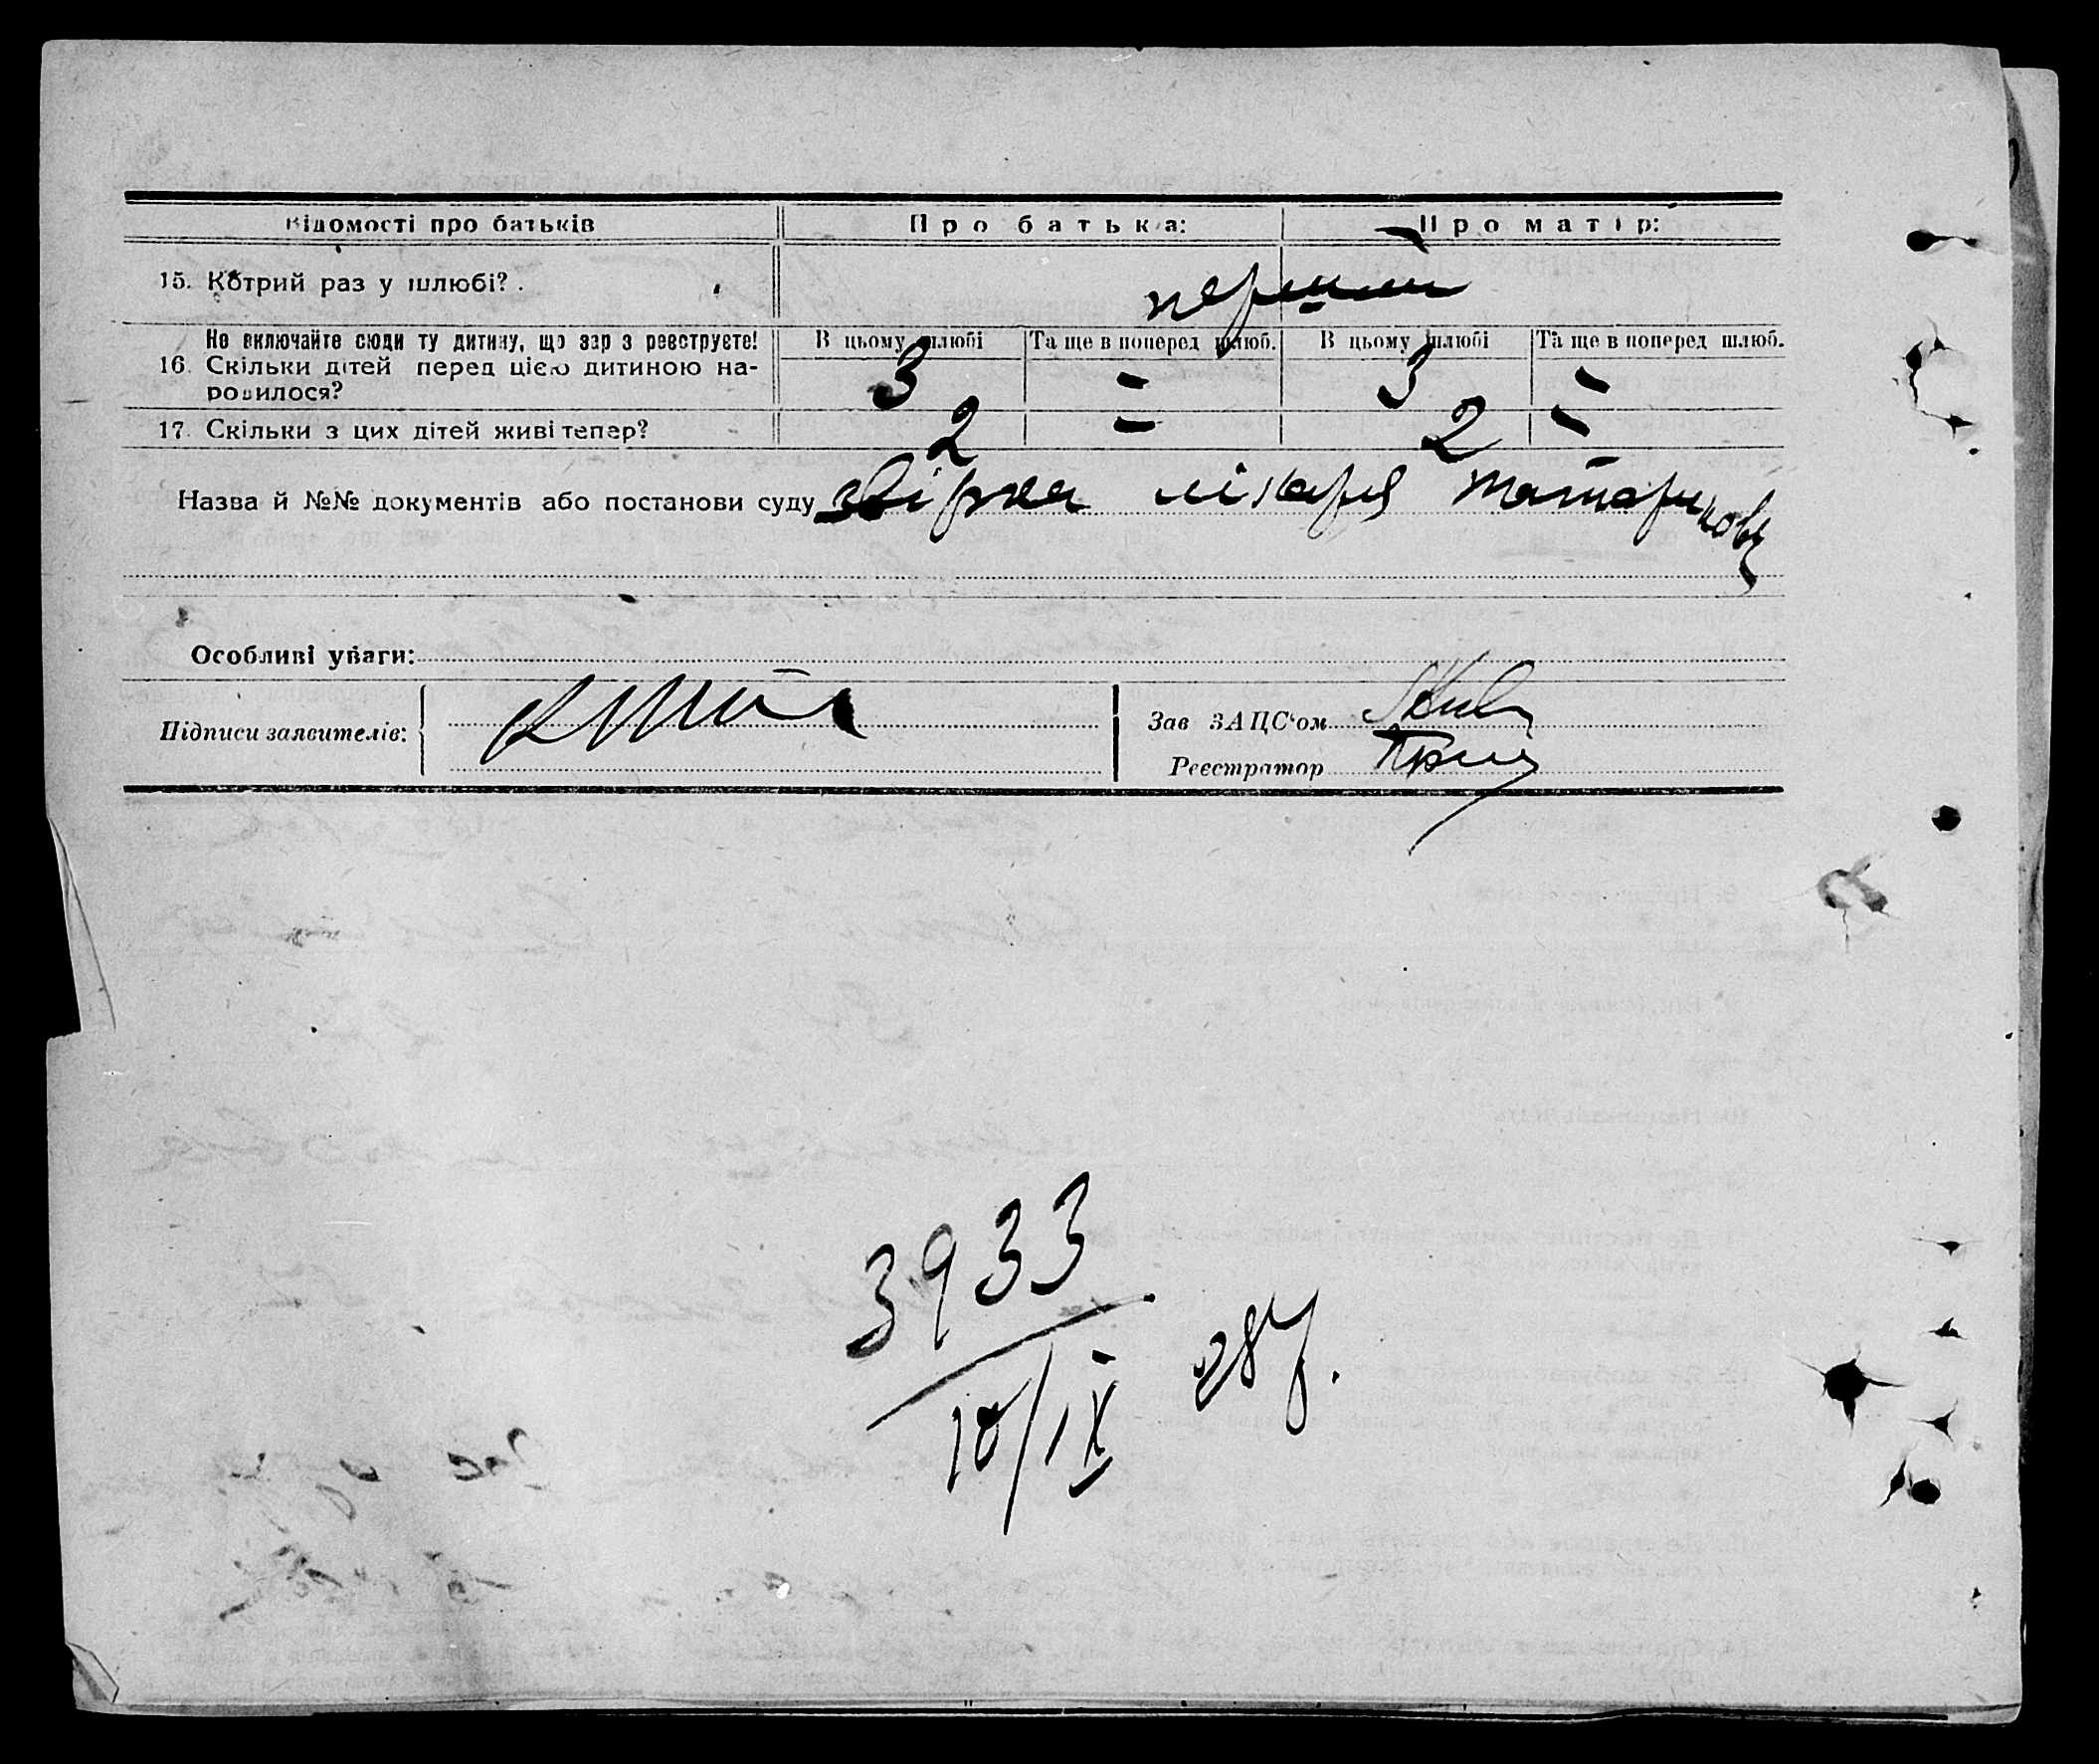 Відомості про батьків Про батька: Про матір:
15. Котрий раз у шлюбі? перший
Не включайте сюди ту дитину, що зараз реєструєте!
16. Скільки дітей перед цією дитиною на-
родилося?
В цьому шлюбі Та ще в поперед шлюб. В цьому шлюбі Та ще в поперед шлюб.
3 - 3 -
17. Скільки з цих дітей живі тепер? 2 - 2 -
Назва й №№ документів або постанови суду лікаря
Особливі уваги:
Підписи заявителів:
Зав ЗАЦС'ом
Реєстратор
3933
10/IX 28 р.